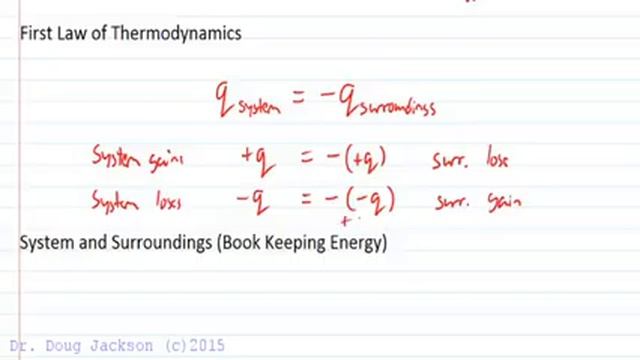 First Law of Thermodynamics
q system = -q surroundings
System gains +q = -(+q) surr. lose
System loses -q = -(-q) surr. gain
+
System and Surroundings (Book Keeping Energy)
Dr. Doug Jackson (c)2015